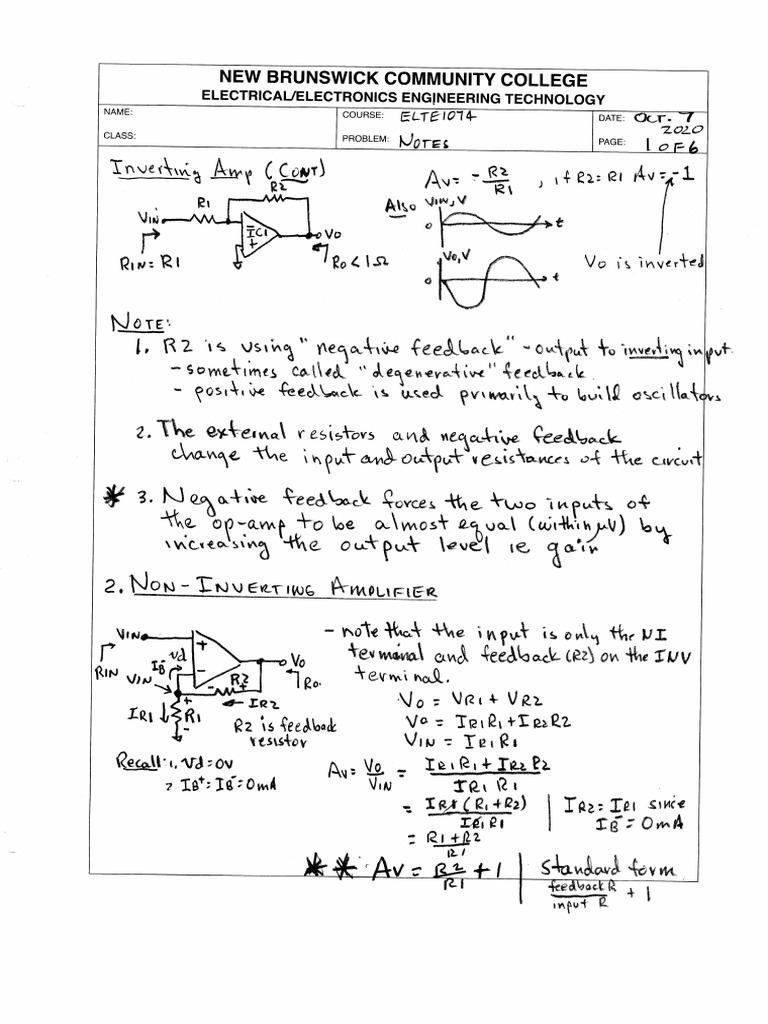 NEW BRUNSWICK COMMUNITY COLLEGE
ELECTRICAL/ELECTRONICS ENGINEERING TECHNOLOGY
NAME:
CLASS:
COURSE: ELTE1074
PROBLEM: NOTES
DATE: OCT. 7 2020
PAGE: 1 OF 6
Inverting Amp (CONT)
Av = -R2/R1 , if R2 = R1 Av = -1
R2
R1
VIN
IC1
- +
Vo
RIN = R1
Ro < 1 Ω
Also
VIN, V
0
t
Vo, V
0
t
Vo is inverted
NOTE:
1. R2 is using "negative feedback" - output to inverting input.
- sometimes called "degenerative" feedback.
- positive feedback is used primarily to build oscillators
2. The external resistors and negative feedback
change the input and output resistances of the circuit
* 3. Negative feedback forces the two inputs of
the op-amp to be almost equal (within μV) by
increasing the output level ie gain
2. NON-INVERTING AMPLIFIER
VIN
+
Vd
IB-
-
Vo
RIN
VIN
- R2 +
Ro
IR1
+ R1 -
IR2
R2 is feedback
resistor
- note that the input is only the NI
terminal and feedback (R2) on the INV
terminal.
Vo = VR1 + VR2
Vo = IR1R1 + IR2R2
VIN = IR1R1
Recall: 1. Vd = 0V
2 IB+ = IB- = 0mA
Av = Vo/VIN = IR1R1 + IR2R2 / IR1R1
= IR1(R1+R2) / IR1R1
IR2 = IR1 since
IB- = 0mA
= R1+R2 / R1
** Av = R2/R1 + 1
Standard form
feedback R / input R + 1